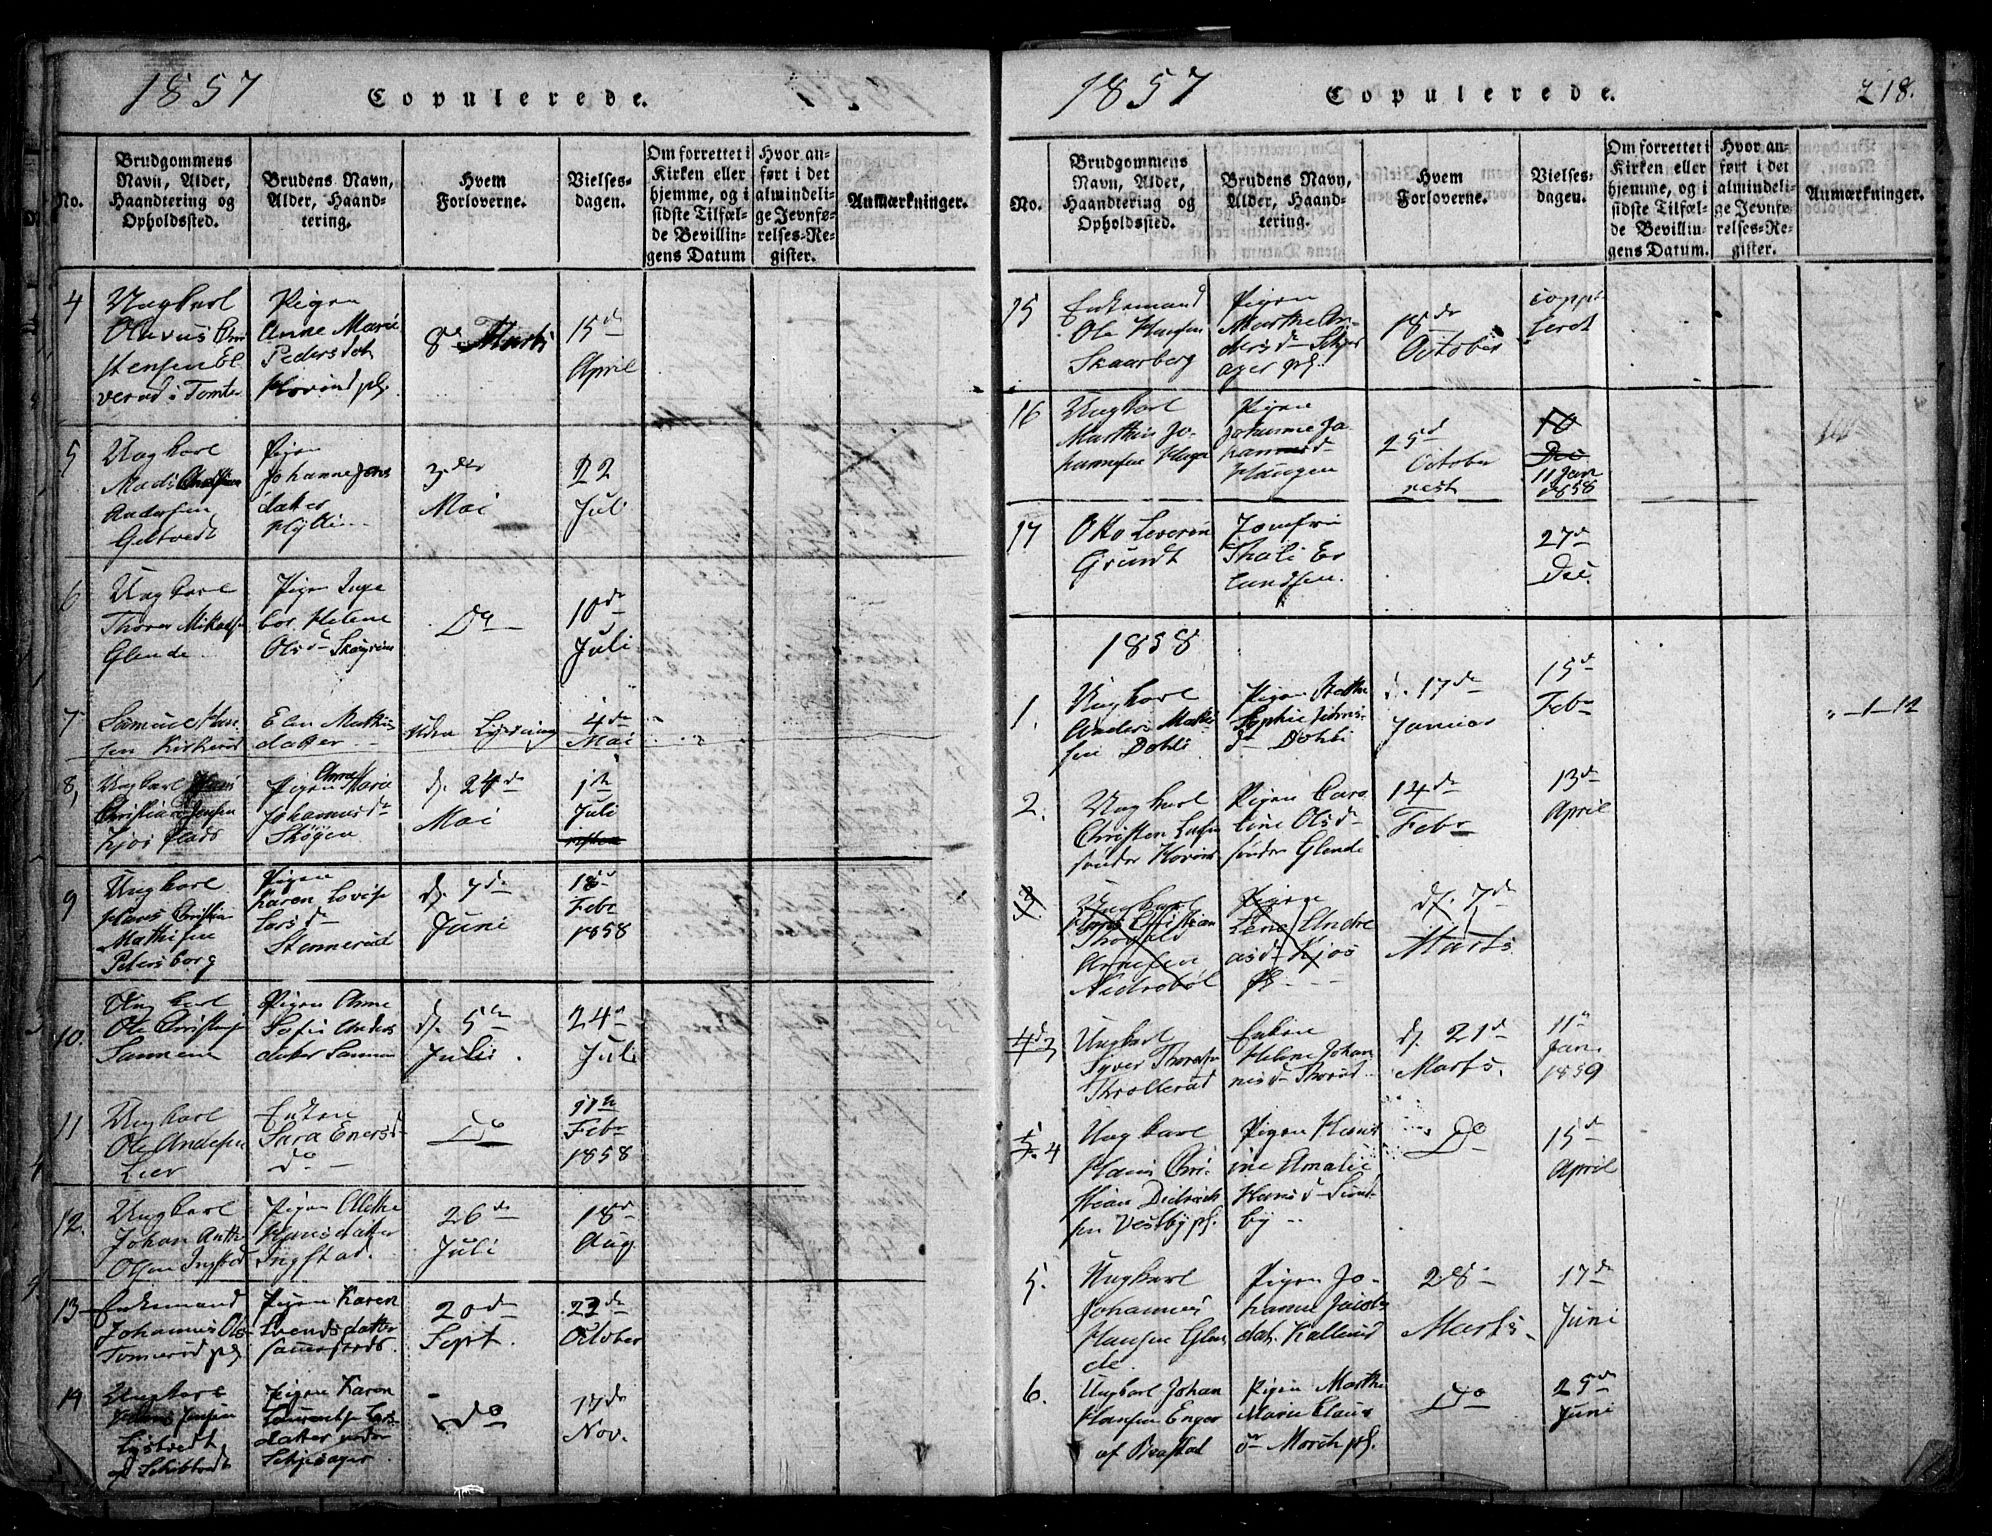 1857
Copulerede.
No.
Brudgommens
Navn, Alder,
Haandtering og
Opholdssted.
Brudens Navn,
Alder, Haand-
tering.
Hvem
Forloverne.
Vielses-
dagen.
Om forrettet i
Kirken eller
hjemme, og i
sidste Tilfæl-
de Bevillin-
gens Datum
Hvor an-
ført i det
almindeli-
ge Jevnfø-
relses-Re-
gister.
Anmærkninger.
4
Ungkarl
Olavus Chri
stensen El
verud i Tomter
Pigen
Anne Marie
Pedersdat
Hovind pl.
8de Marts
15de
April
5
Ungkarl
Mads
Andersen
Geltvedt
Pigen
Johanne Jens
datter
3die
Mai
22
Juli
6
Ungkarl
Thorer Mikelsen
Glende
Pigen Inge
bor. Helene
Olsd
Do
10de
Juli
7
Samuel Han
sen Kirkerud
Elen Mathis
datter
Uden Lysning
4de
Mai
8,
Ungkarl
Christian Jensen
Kjos Plads
Pigen Anne Marie
Johannesd
Skogen
d. 24de
Mai
1ste
Juli
9
Ungkarl
Hans Christian
Mathisen
Petersborg
Pigen
Karen Lovise
Larsd
Stonnerud
d. 7de
Juni
18d
Febr
1858
10.
Ungkarl
Ole Christensen
Sannem
Pigen Anne
Sofie Anders
datter Sannem
d. 5te
Juli.
24d
Juli
11
Ungkarl
Ole Andersen
Lier
Enken
Sara Enersd
do
Do
11te
Febr
1858
12.
Ungkarl
Johan Anth
Olsen Ingstad
Pigen Alethe
Hansdatter
Ingstad.
26de
Juli
18d
Aug
13
Enkemand
Johannes Ols
Tomerud pl
Pigen Karen
Svendsdatter
20de
Sept.
22de
October
14
Ungkarl
Hans Jensen
Lystvedt
Pigen Karen
Laurentse Lars
datter under
Schjesager
do
17de
Nov.
1857
Copulerede.
218.
No.
Brudgommens
Navn, Alder,
Haandtering og
Opholdssted.
Brudens Navn,
Alder, Haand-
tering.
Hvem
Forloverne.
Vielses-
dagen.
Om forrettet i
Kirken eller
hjemme, og i
sidste Tilfæl-
de Bevillin-
gens Datum.
Hvor an-
ført i det
almindeli-
ge Jevnfø-
relses-Re-
gister.
Anmærkninger.
15
Enkemand
Ole Hansen
Skaarberg
Pigen
Marthe An
dersd
ager pl.
18de
October
16
Ungkarl
Marthin Jo-
hannesen Haga
Pigen
Johanne Jo
hannesd
Haugen
25d
October
10
Dec
11 Jan
1858
17
Otto Severin
Grundt
Jomfru
Thali Er
landsen.
27d
Dec.
1858
1.
Ungkarl
Anders Mathi
sen Dohli
Pigen
Sophie Johns
d Dohli
d. 17de
Januar
15d
Febr
1 12
2.
Ungkarl
Christen Larsen
sønder Hovind
Pigen Caro
line Olsd
sønder Glende
14de
Febr
13de
April
3.
Ungkarl
Hans Christian
Arnesen
Pigen
Lena Andre
asd Kjos
pl
d. 7de
Marts
4d 3
Ungkarl
Syver Thoresen
Throllerud
Enken
Helene Johan
nesd Thorud
d. 21d
Marts.
11te
Jan.
1859
5. 4
Ungkarl
Hans Chri-
stian Didrich
sen Vestby pl.
Pigen Hans
ine Amalie
Hansd Sund-
by
Do
15de
April
5.
Ungkarl
Johannes
Hansen Glen
de
Pigen Jo-
hanne Jacobs
dat. Kallerud
28
Marts.
17de
Juni
6.
Ungkarl Johan
Hansen Enger
af Brastad
Pigen Marthe
Marie Claus
dr Morch pl.
Do
25de
Juni